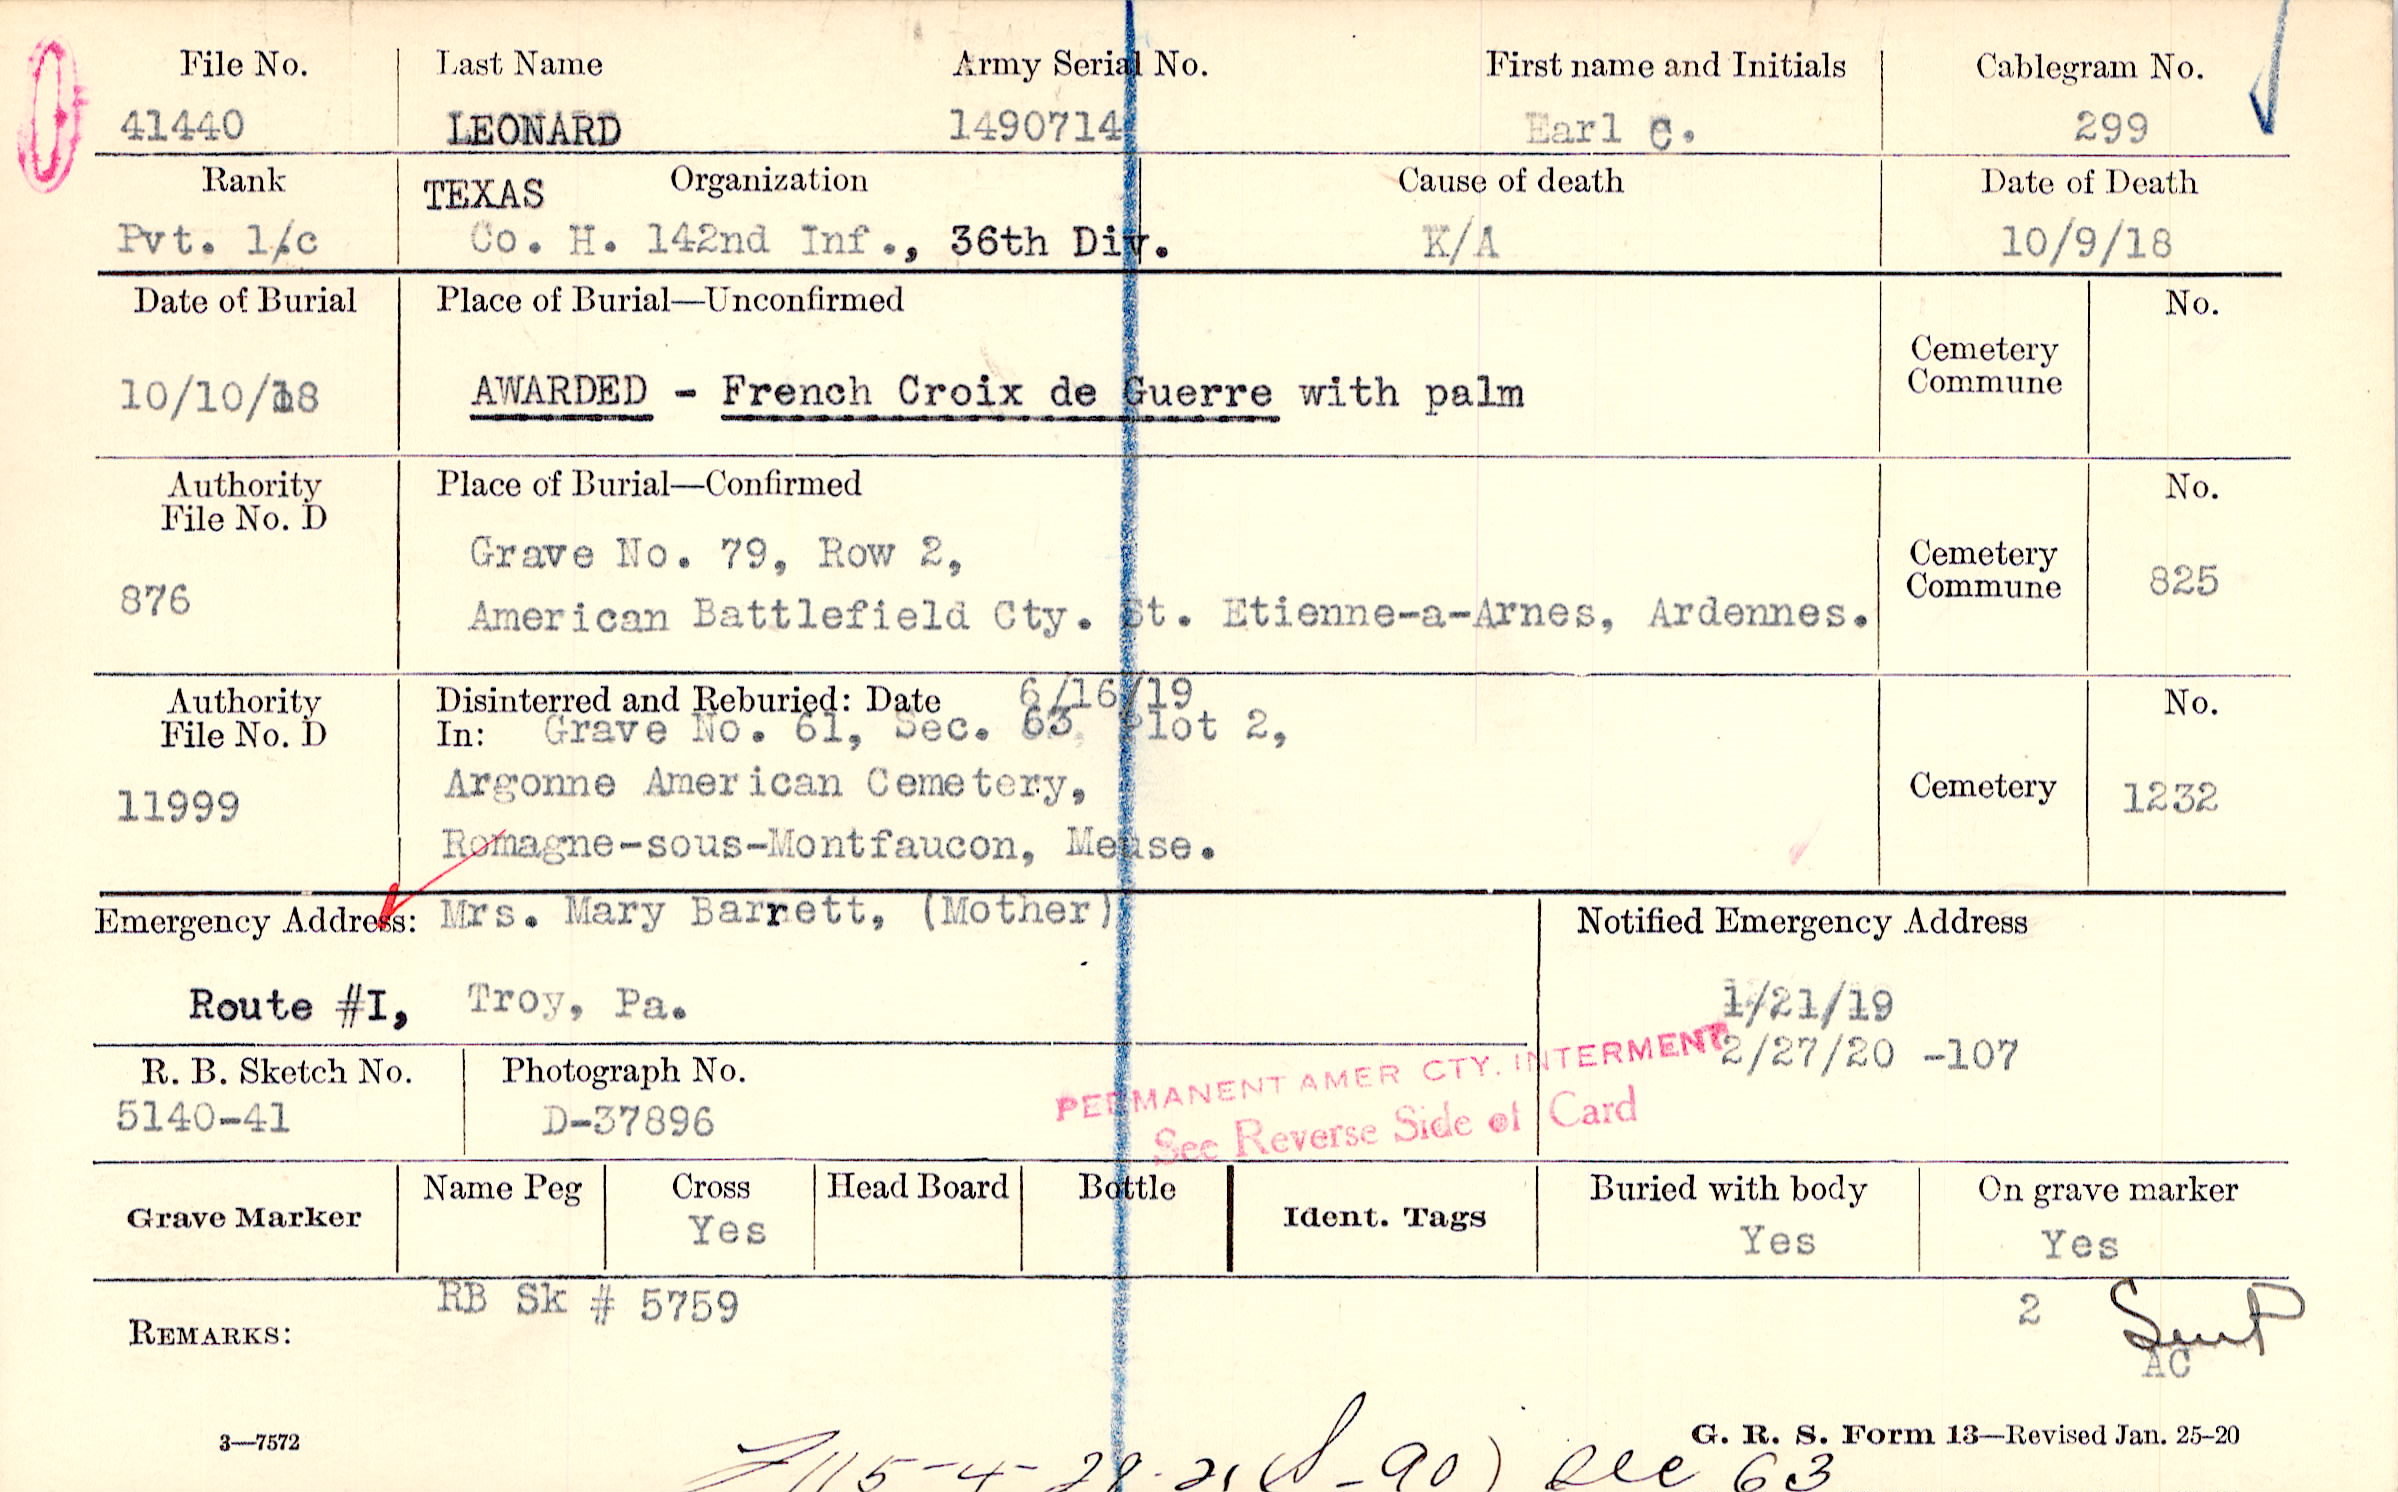 File No. Last Name Army Serial No. First name and Initials Cablegram No.
41440 LEONARD 1490714 Earl C. 299
Rank TEXAS Organization Cause of death Date of Death
Pvt. 1/c Co. H. 142nd Inf., 36th Div. K/A 10/9/18
Date of Burial Place of Burial—Unconfirmed Cemetery Commune No.
10/10/18 AWARDED - French Croix de Guerre with palm
Authority File No. D Place of Burial—Confirmed No.
876 Grave No. 79, Row 2, Cemetery Commune 825
American Battlefield Cty. St. Etienne-a-Arnes, Ardennes.
Authority File No. D Disinterred and Reburied: Date 6/16/19 No.
In: Grave No. 61, Sec. 63, Plot 2,
11999 Argonne American Cemetery, Cemetery 1232
Romagne-sous-Montfaucon, Meuse.
Emergency Address: Mrs. Mary Barrett, (Mother) Notified Emergency Address
Route #I, Troy, Pa. 1/21/19
2/27/20 -107
R. B. Sketch No. Photograph No. PERMANENT AMER CTY. INTERMENT
5140-41 D-37896 See Reverse Side of Card
Grave Marker Name Peg Cross Head Board Bottle Ident. Tags Buried with body On grave marker
Yes Yes Yes
REMARKS: RB Sk # 5759 2
AC
3—7572 G. R. S. Form 13—Revised Jan. 25-20
63